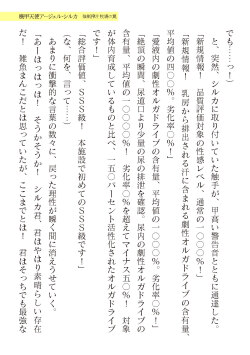 機甲天使アージェル・シルカ
でも……っ！」
　と、突然、シルカに取り付いていた触手が、甲高い警告音とともに通達した。
「新規情報！　品質評価対象の性感レベル、通常の一〇〇〇％！」
「新規情報！　乳房から排出される汗に含まれる劇性オルガドライブの含有量、
平均値の一〇〇〇％！　劣化率〇％！」
「愛液内の劇性オルガドライブの含有量、平均値の一〇〇〇％！　劣化率〇％！
「絶頂の瞬間、尿道口より少量の尿の排泄を確認。尿内の劇性オルガドライブの
含有量、平均値の一〇〇〇％！　劣化率〇％を超えてマイナス五〇％！　対象
が体内育成しているものと比べ、一五〇パーセント活性化されたオルガドライブ
です！」
「総合評価値、ＳＳＳ級！　本施設で初めてのＳＳＳ級です！」
「な、何を、言って……！」
　あまりに衝撃的な言葉の数々に、戻った理性が瞬く間に消えうせていく。
「あーはっはっは！　そうかそうか！　シルカ君、君はやはり素晴らしい存在
だ！　雑魚まんこだとは思っていたが、ここまでとは！　君はそっちでも最強な